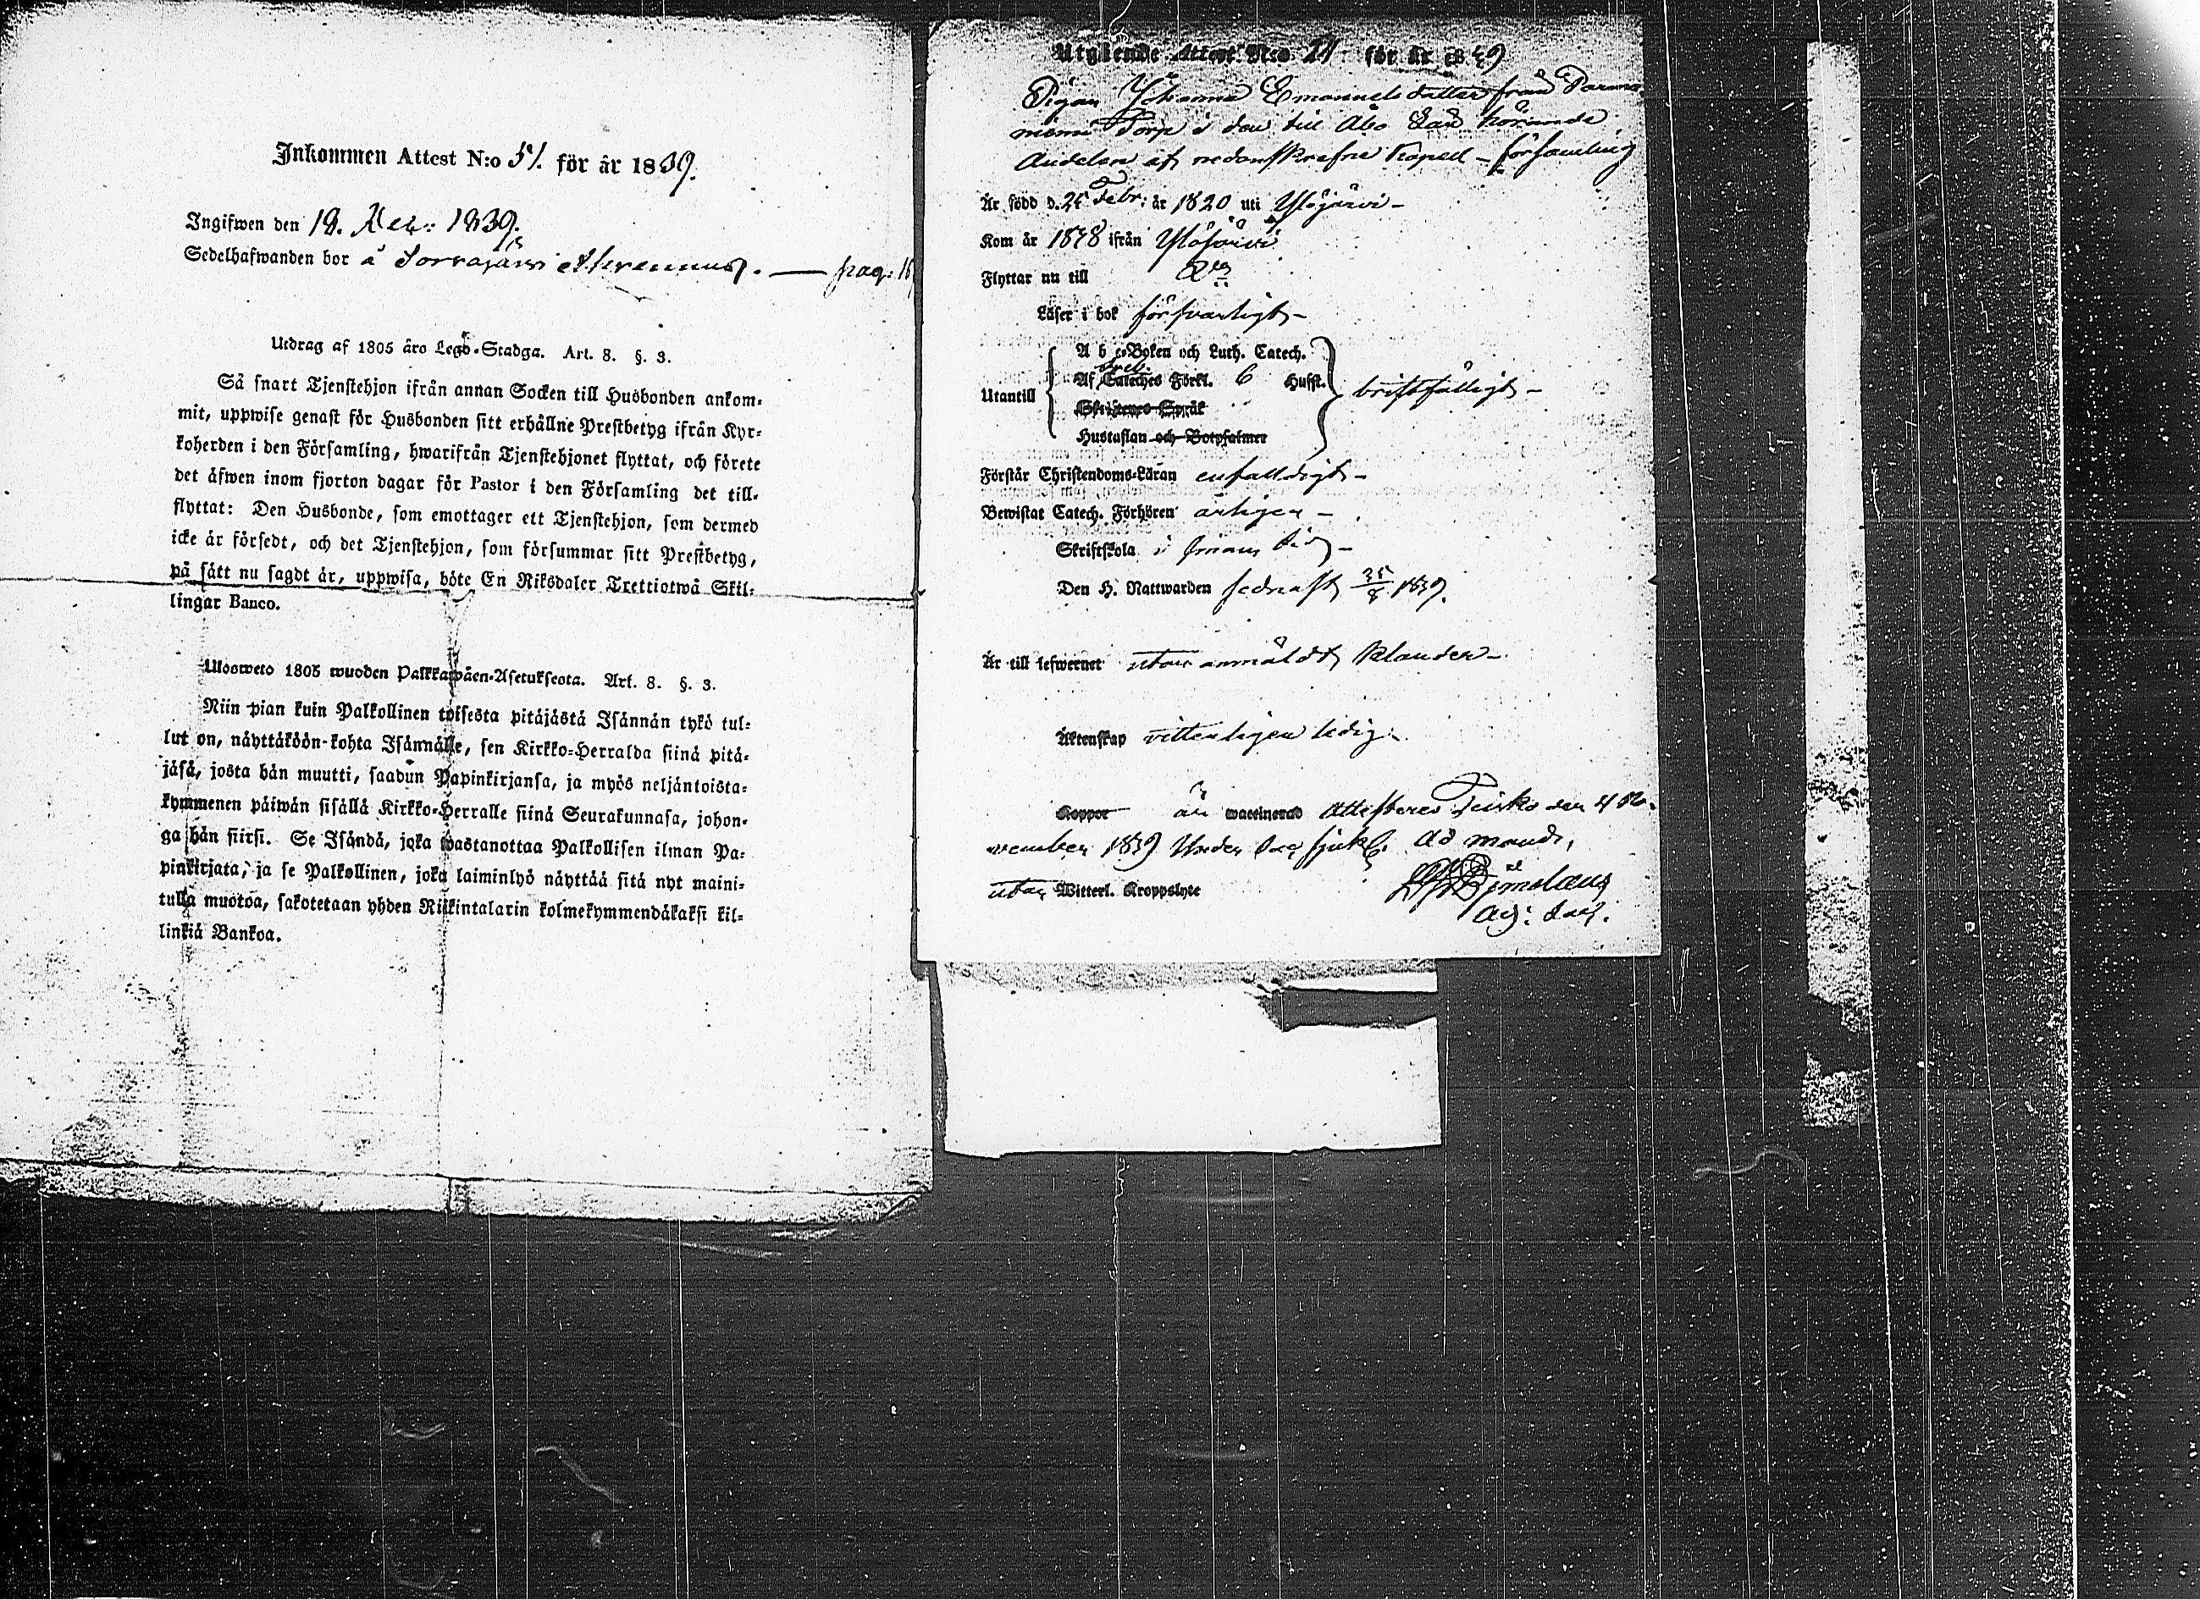 Inkommen Attest N:o 51. för år 1839.
Ingifwen den 19. 1839.
Sedelhafwanden bor å Sorrajärwi — pag: 16
Utdrag af 1805 års Lego-Stadga. Art. 8. §. 3.
Så snart Tjenstehjon ifrån annan Socken till Husbonden ankom-
mit, uppwise genast för Husbonden sitt erhållne Prestbetyg ifrån Kyr-
koherden i den Församling, hwarifrån Tjenstehjonet flyttat, och förete
det äfwen inom fjorton dagar för Pastor i den Församling det till-
flyttat: Den Husbonde, som emottager ett Tjenstehjon, som dermed
icke är försedt, och det Tjenstehjon, som försummar sitt Prestbetyg,
på sätt nu sagdt är, uppwisa, böte En Riksdaler Trettiotwå Skil-
lingar Banco.
Ulosweto 1805 wuoden Palkkawäen-Asetuksesta. Art. 8. §. 3.
Niin pian kuin Palkollinen toisesta pitäjästä Isännän tykö tul-
lut on, näyttäköön kohta Isännälle, sen Kirkko-Herralda siinä pitä-
jäsä, josta hän muutti, saadun Papinkirjansa, ja myös neljäntoista-
kymmenen päiwän sisällä Kirkko-Herralle siinä Seurakunnasa, johon-
ga hän siirsi. Se Isändä, joka wastanottaa Palkollisen ilman Pa-
pinkirjata, ja se Palkollinen, joka laiminlyö näyttää sitä nyt maini-
tulla muotoa, sakotetaan yhden Riikintalarin kolmekymmendäkaksi kil-
linkiä Bankoa.
Utgående Attest N:o 24 för år 1839
Pigan Johanna Emanuelsdotter från
Torp i den till Åbo Län hörande
Andelen af nedanskrefne Kapell-församling
Är född d. 25 Febr: år 1820 uti Ylöjärvi -
Kom år 1838 ifrån Ylöjärvi
Flyttar nu till
Läser i bok försvarligt -
Utantill
A b c-Boken och Luth. Catech.
Af Cateches Förkl. 6 Husst.
Skriftenes Språk
Hustaflan och Botpsalmer
bristfälligt -
Förstår Christendoms-Läran enfalldigt -
Bewistat Catech. Förhören årligen -
Skriftskola i sinom tid -
Den H. Nattwarden sednast 25/8 1839.
Är till lefwernet utan anmäldt klander -
Äktenskap vitterligen ledig -
Koppor är waccinerad Attesteres Teisko den 4 No-
vember 1839 Under
utan Witterl. Kroppslyte
Adj: Sac: